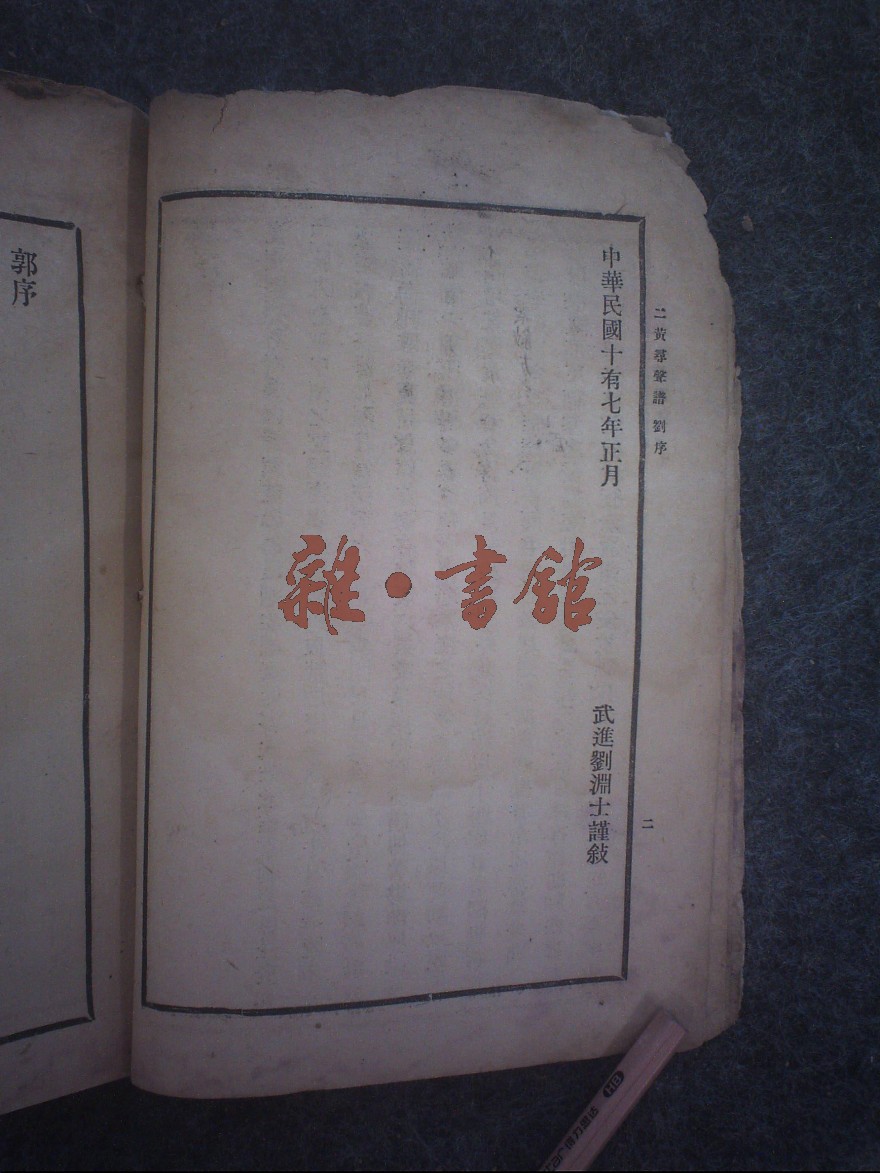 二黃尋聲譜 劉序
二
中華民國十有七年正月
武進劉淵士謹敍
雜・書館
郭序
HB